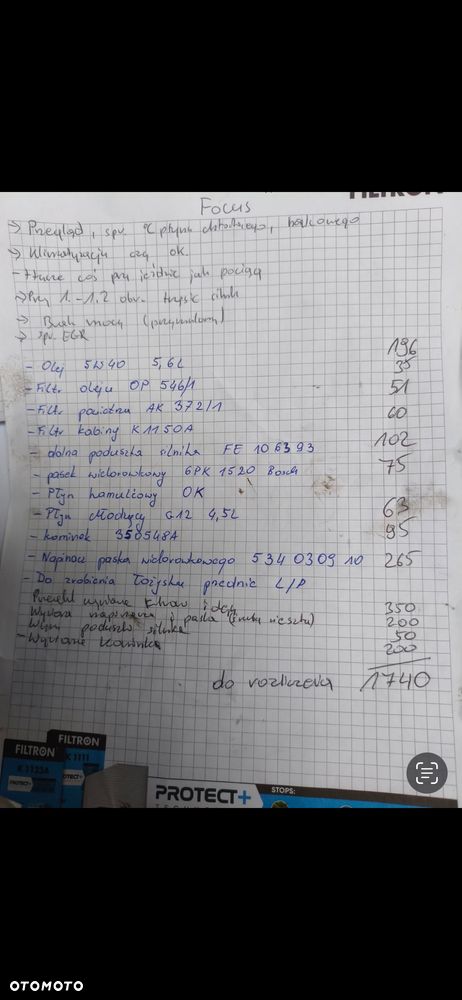 FILTRON
Focus
→ Przegląd, spr. °C płynu chłodniczego, hamulcowego
→ Klimatyzacja czy ok.
- Tłucze coś przy jeździe jak pociąg
→ Przy 1.-1,2 obr. silnik
→ Brak mocy (przymulony)
→ spr. EGR
- Olej 5W40 5,6L 196
- Filtr oleju OP 546/1 35
- Filtr powietrza AK 372/1 51
- Filtr kabiny K1150A 60
- dolna poduszka silnika FE 106393 102
- pasek wielorowkowy 6PK 1520 Bosch 75
- Płyn hamulcowy OK
- Płyn chłodzący G12 4,5L 63
- kominek 350548A 95
- Napinacz paska wielorowkowego 534 0309 10 265
- Do zrobienia łożyska przednie L/P
Przegląd wymiana filtrów i oleju 350
Wymiana napinacza i paska 200
Wym poduszki silnika 50
- Wymiana kominka 200
do rozliczenia 1740
FILTRON
K 1111
FILTRON
K 1123A
PROTECT+
PROTECT+
STOPS:
OTOMOTO